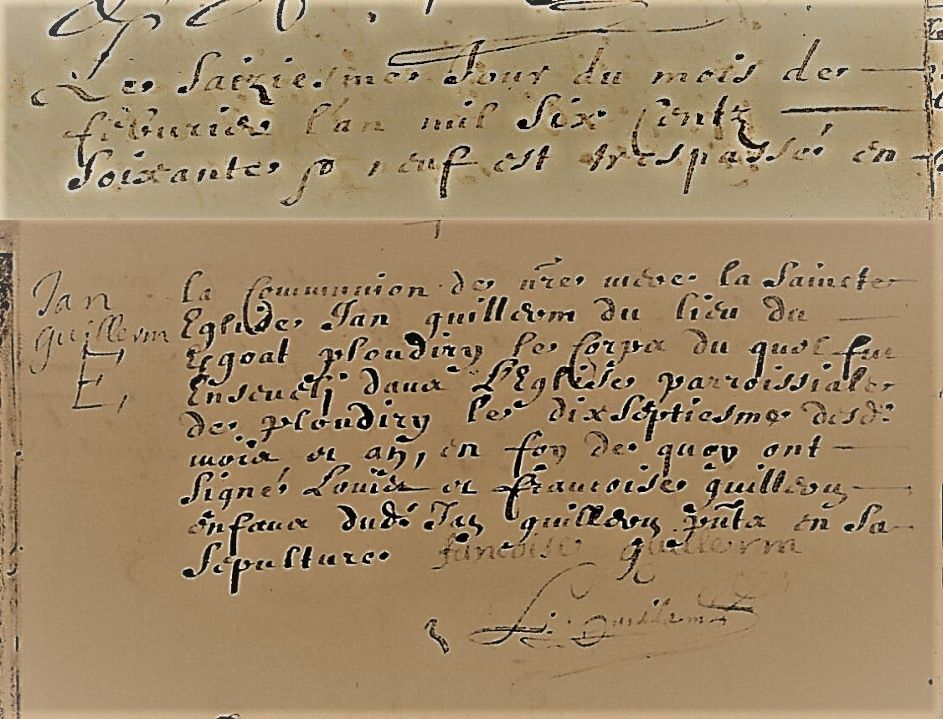 Le Saiziesme Jour du mois de
febvrier l'an mil Six Centz
Soixante & neuf est trespassé en
Jan
guillerm
la Communion de nr̃e mere la Saincte
Eglise Jan guillerm du lieu du
Ergoat ploudiry le Corps du quel fut
Enseueli dans L'Eglise parroissiale
de ploudiry le dixseptiesme desd:
mois et añ, en foy de quoy ont
Signé Louïs et francoise guillerm
enfans dud: Jan guillerm pñts en Sa
Sepulture francoise guillerm
L: guillerm